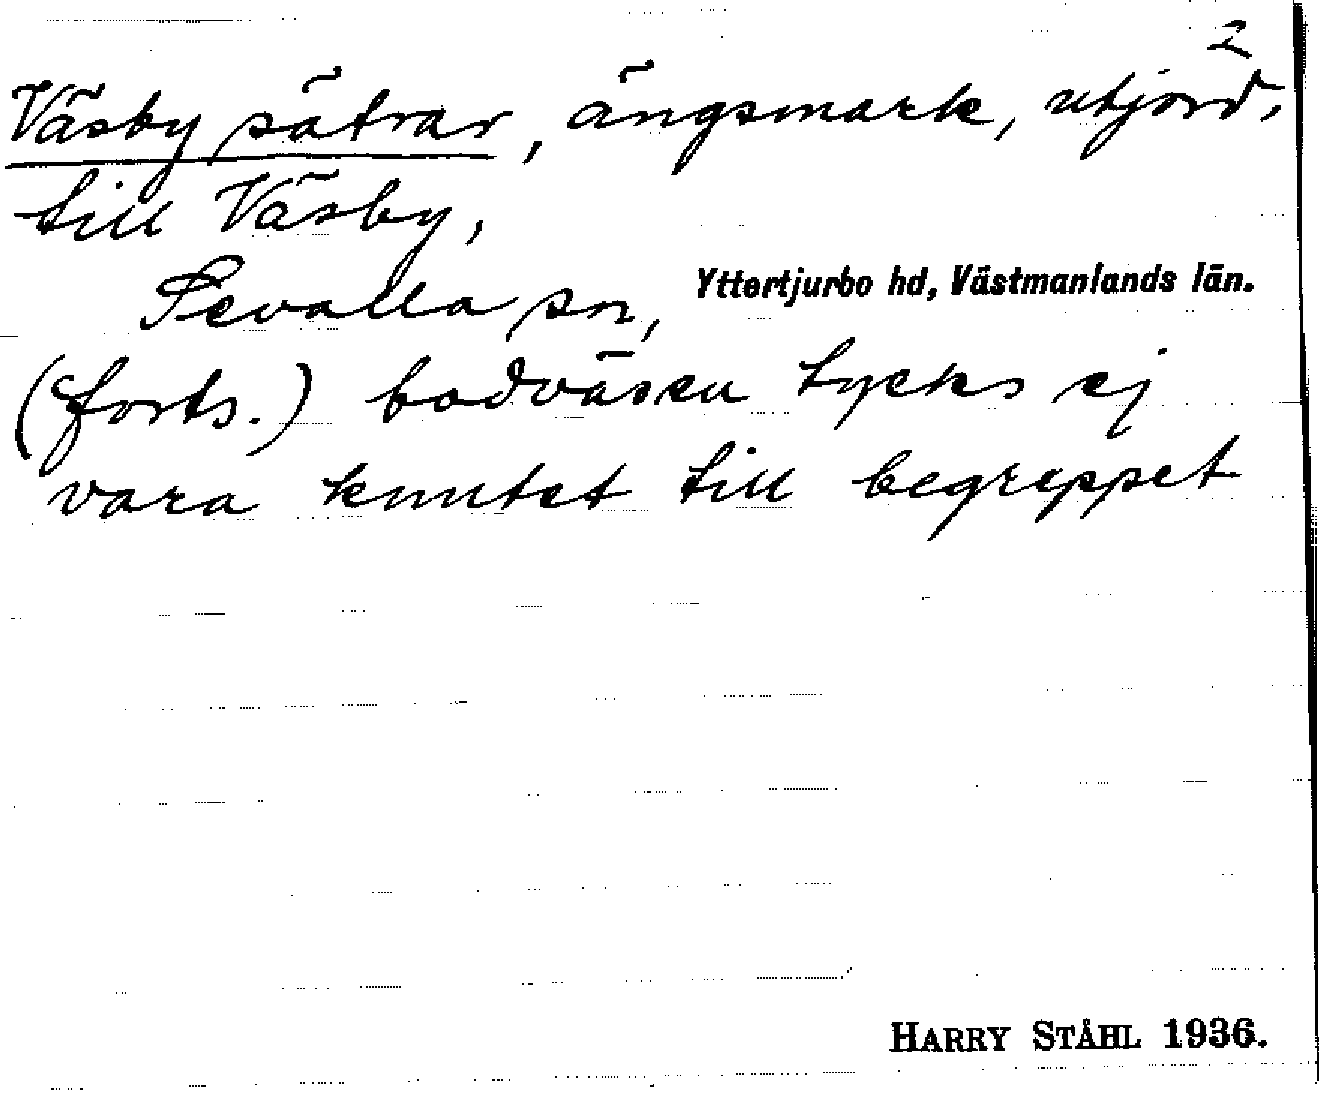 2
Väsby sätrar, ängsmark, utjord,
till Väsby,
Sevalla sn, Yttertjurbo hd, Västmanlands län.
(forts.) bodväsen tycks ej
vara knutet till begreppet
HARRY STÅHL 1936.